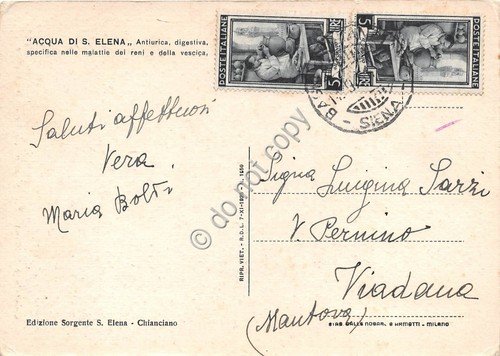 "ACQUA DI S. ELENA„ Antiurica, digestiva,
specifica nelle malattie dei reni e della vescica,
POSTE ITALIANE
L. 5
POSTE ITALIANE
L. 5
SIENA
Saluti affettuosi
Vera
Maria Bolti
do not copy
Signa Luigina Sarzi
V. Pernino
Viadana
(Mantova)
RIPR. VIET. - R.D.L. 7-XI-1925 - N. 1950
Edizione Sorgente S. Elena - Chianciano
- MILANO